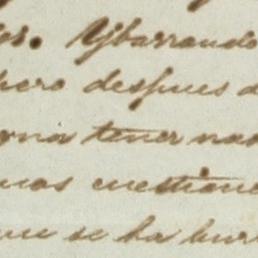 os. Ybarrando
pero despues d
ona tener nad
nas cuestione
ue se ha bur